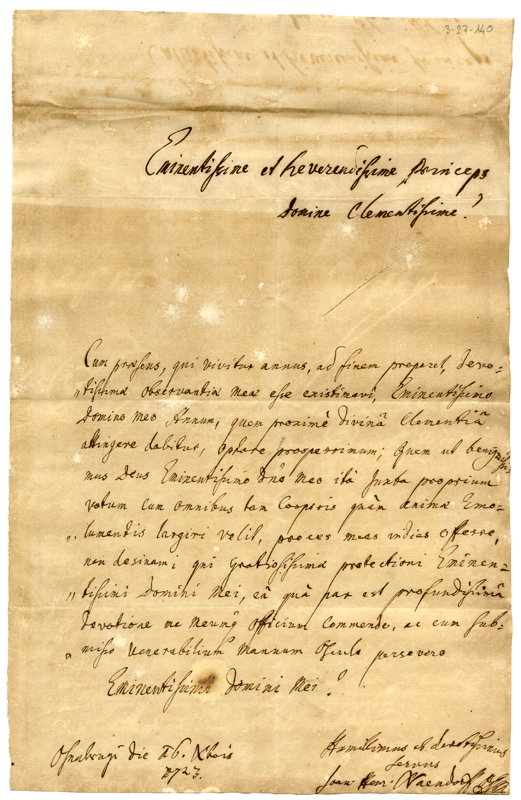 3-27-140
Eminentissime et Reverendissime Princeps
Domine Clementissime!
Cum praesens, qui vivitur annus, ad finem properet, devo=
"tissimae observantiae meae esse existimavi, Eminentissimo
Domino Meo Annum, quem proximè divinâ Clementiâ
attingere dabitur, optare prosperrimum; Quem ut benignissi=
mus Deus Eminentissimo Dño Meo ità juxta proprium
votum cum omnibus tam Corporis quàm animae Emo=
"lumentis largiri velit, preces meas indies offerre,
non desinam; qui gratiosissimae protectioni Eminen=
"tissimi Domini Mei, eâ quâ par est profundissimâ
devotione me meumq officium commendo, ac cum sub=
"misso venerabilium Manuum Osculo persevero
Eminentissimi Domini Mei!
Osnabrugi die 16. Xbris
1723.
Humilimus et devotissimus
servus
Joan Henr